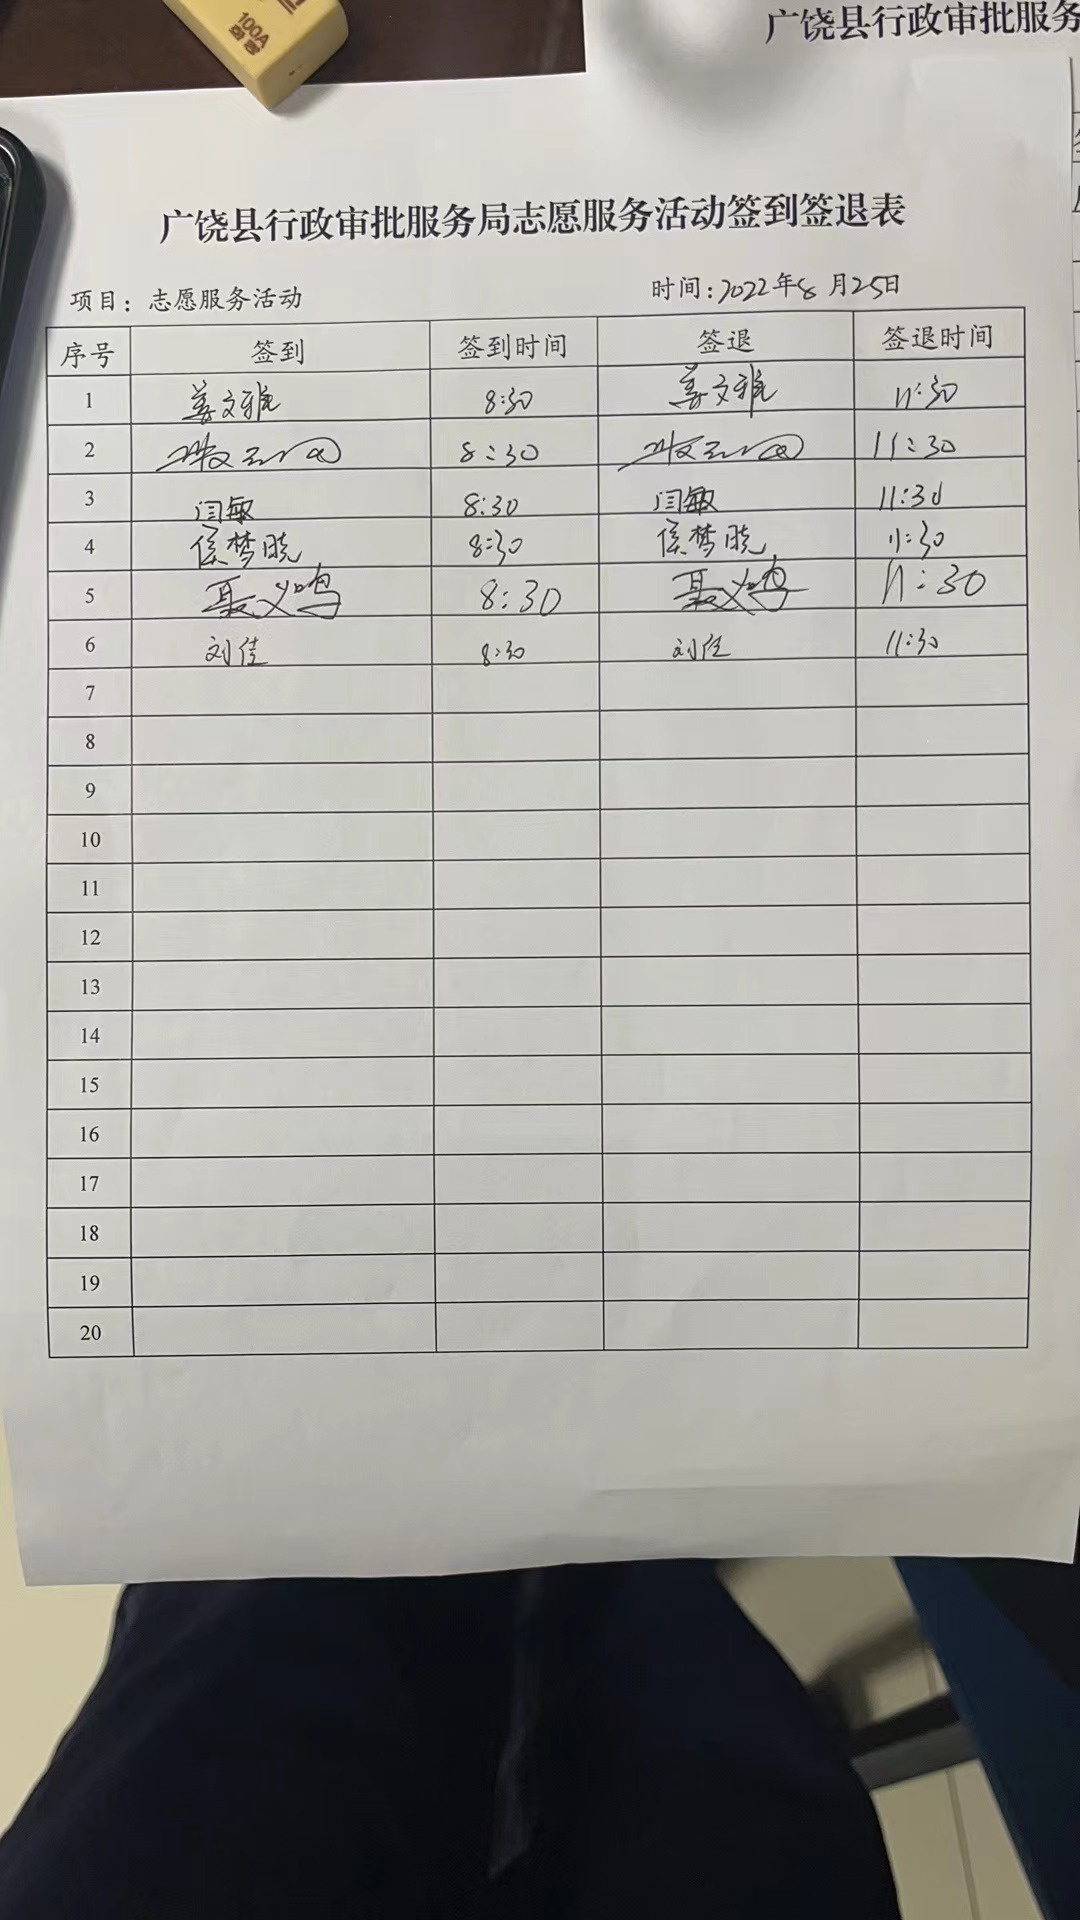 100A
广饶县行政审批服务
广饶县行政审批服务局志愿服务活动签到签退表
项目：志愿服务活动 时间：2022年8月25日
序号 签到 签到时间 签退 签退时间
1 姜文雅 8:30 姜文雅 11:30
2 8:30 11:30
3 闫敏 8:30 闫敏 11:30
4 侯梦晓 8:30 侯梦晓 11:30
5 聂义鸣 8:30 聂义鸣 11:30
6 刘佳 8:30 刘佳 11:30
7
8
9
10
11
12
13
14
15
16
17
18
19
20